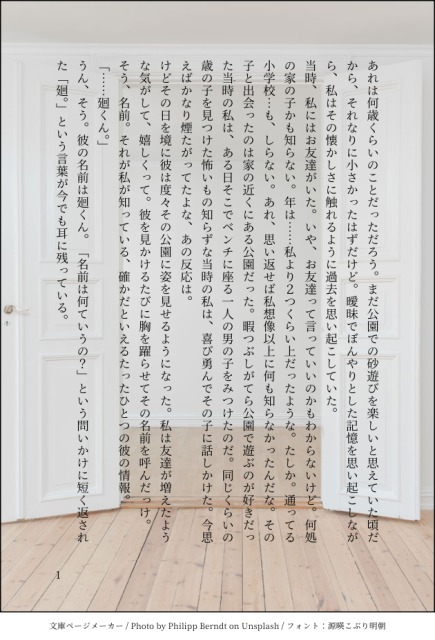 あれは何歳くらいのことだっただろう。まだ公園での砂遊びを楽しいと思えていた頃だ
から、それなりに小さかったはずだけど。曖昧でぼんやりとした記憶を思い起こしなが
ら、私はその懐かしさに触れるように過去を思い起こしていた。
当時、私にはお友達がいた。いや、お友達って言っていいのかもわからないけど。何処
の家の子かも知らない。年は……私より２つくらい上だったような。たしか。通ってる
小学校…も、しらない。あれ、思い返せば私想像以上に何も知らなかったんだな。その
子と出会ったのは家の近くにある公園だった。暇つぶしがてら公園で遊ぶのが好きだっ
た当時の私は、ある日そこでベンチに座る一人の男の子をみつけたのだ。同じくらいの
歳の子を見つけた怖いもの知らずな当時の私は、喜び勇んでその子に話しかけた。今思
えばかなり煙たがってたよな、あの反応は。
けどその日を境に彼は度々その公園に姿を見せるようになった。私は友達が増えたよう
な気がして、嬉しくって。彼を見かけるたびに胸を躍らせてその名前を呼んだっけ。
そう、名前。それが私が知っている、確かだといえるたったひとつの彼の情報。
「……廻くん。」
うん、そう。彼の名前は廻くん。「名前は何ていうの？」という問いかけに短く返され
た「廻。」という言葉が今でも耳に残っている。
1
文庫ページメーカー / Photo by Philipp Berndt on Unsplash / フォント：源暎こぶり明朝